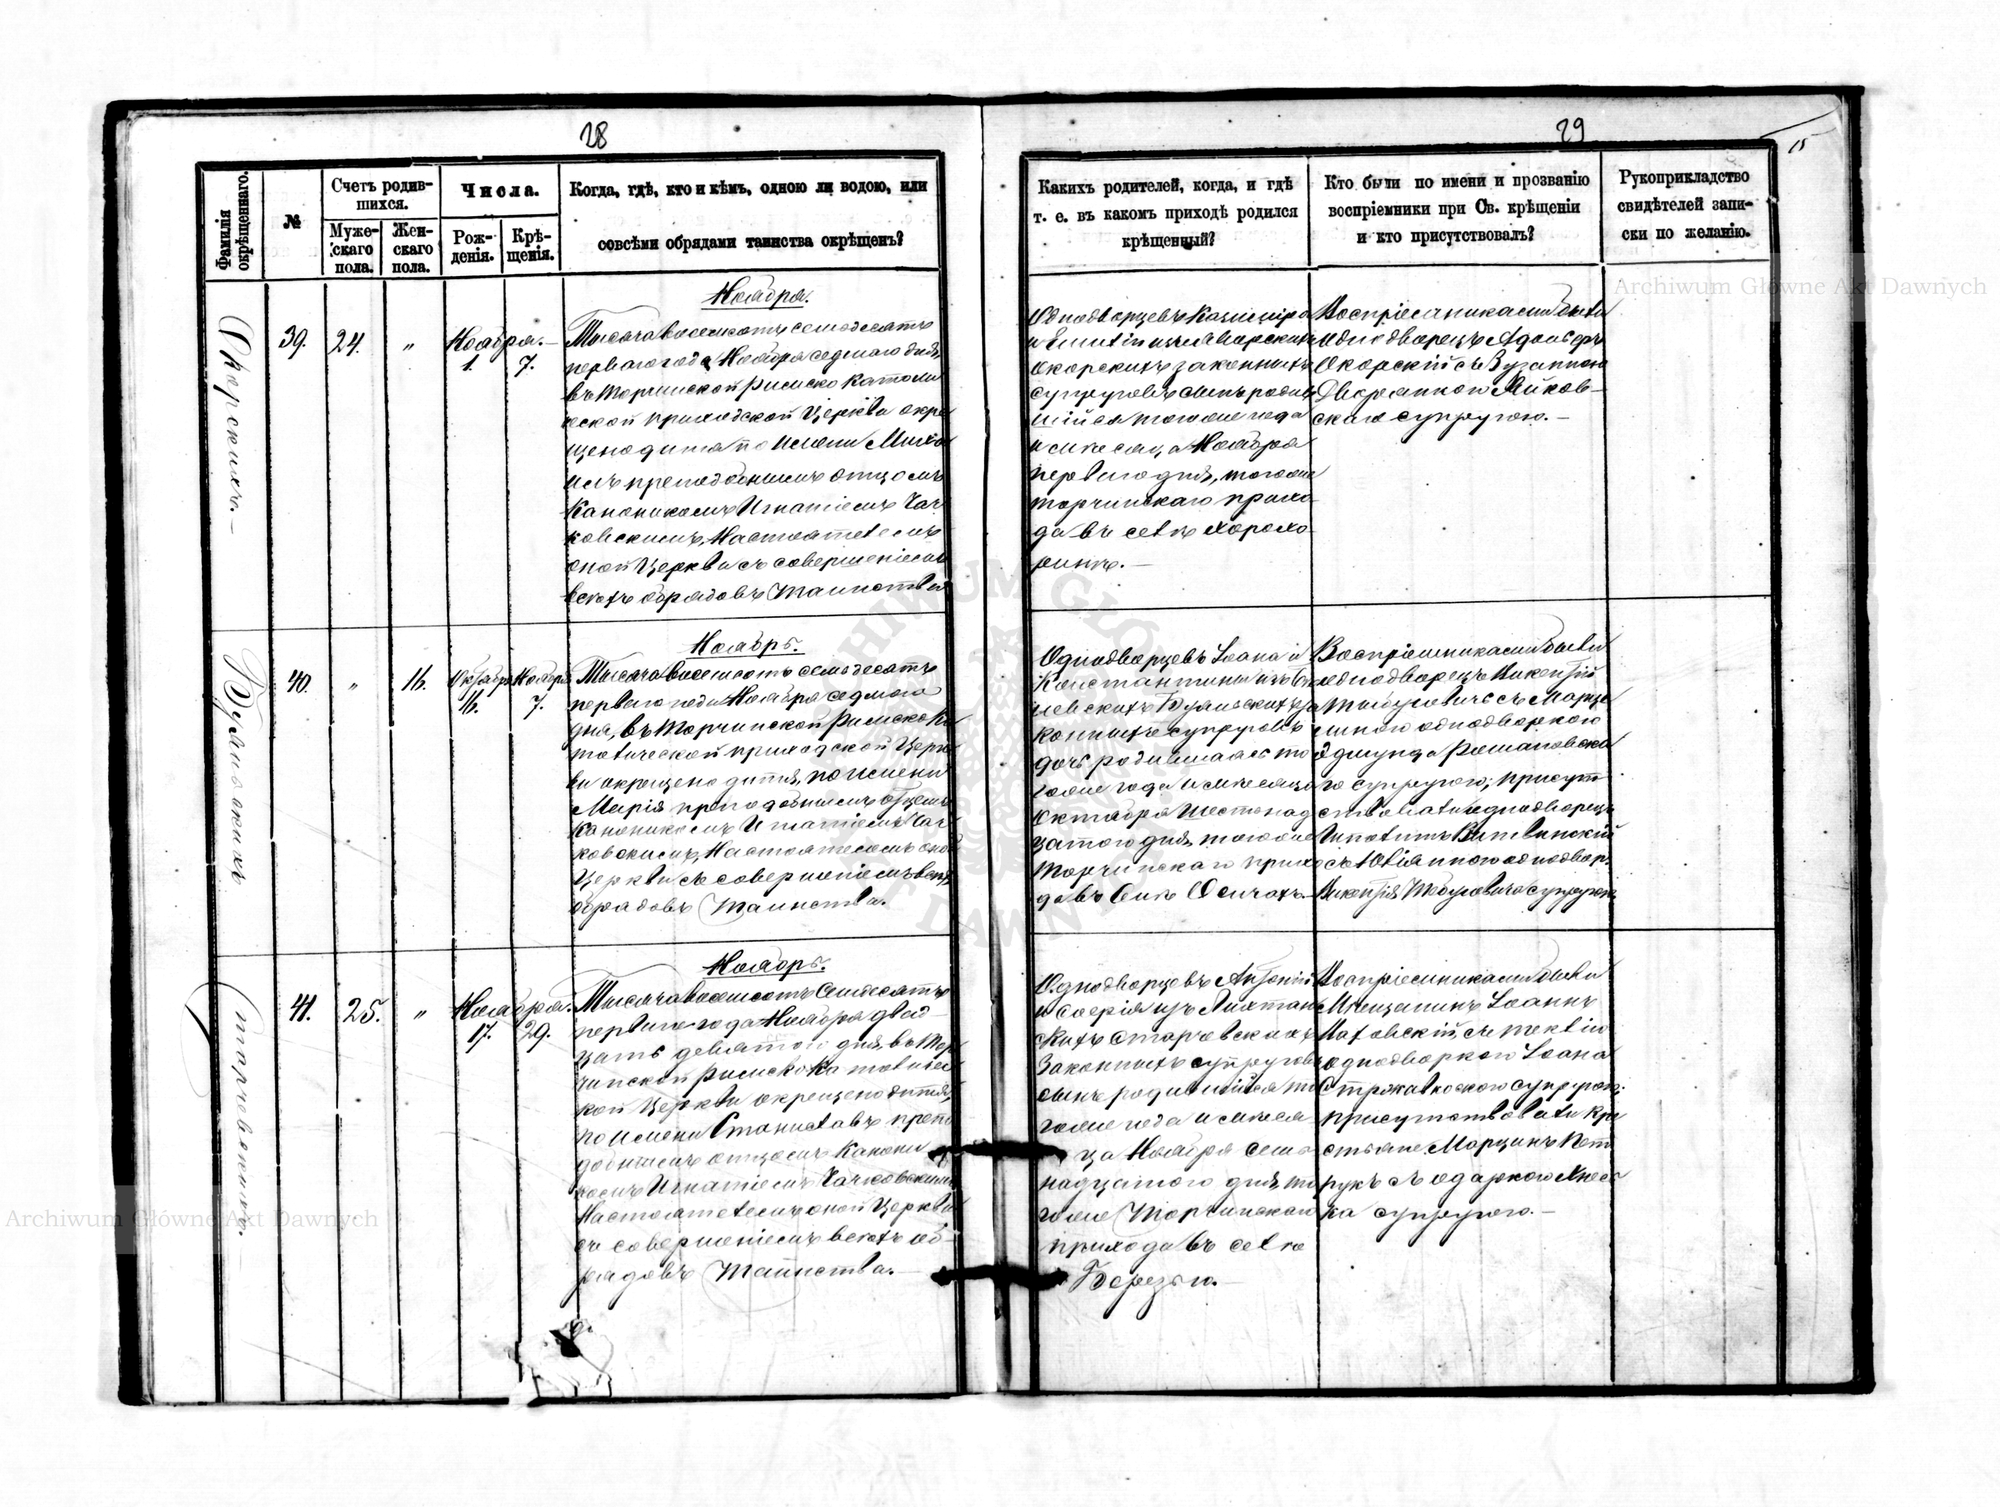 28
Фамилія окрѣщеннаго.
№
Счетъ родив-
шихся.
Муже-
скаго
пола.
Жен-
скаго
пола.
Числа.
Рож-
денія.
Крѣ-
щенія.
Когда, гдѣ, кто и кѣмъ, одною ли водою, или
совсѣми обрядами таинства окрѣщенъ?
Окорскихъ.—
39.
24.
"
Ноября.—
1.
7.
Ноября.
Тысяча восемьсотъ семьдесятъ
перваго года Ноября седмаго дня,
въ Торчинской Римско Католи
ческой приходской Церкви окре
щено дитя по имени Миха
илъ преподобнымъ отцомъ
Каноникомъ Игнатіемъ Чач
ковскимъ, Настоятелемъ
оной Церкви съ совершеніемъ
всехъ обрядовъ Таинства
40.
"
16.
Октября
16.
Ноября
7.
Ноябрь.
Тысяча восемьсотъ семьдесятъ
перваго года Ноября седмого
дня, въ Торчинской Римско Ка
толической приходской Церк
ви окрещено дитя, по имени
Марія преподобнымъ Отцемъ
Каноникомъ Игнатіемъ Чач
ковскимъ, Настоятелемъ оной
Церкви съ совершеніемъ всехъ
обрядовъ Таинства.
Старчевскихъ.
41.
25.
"
Ноября.
17.
29.
Ноябрь.
Тысяча восемьсотъ Семдесятъ
перваго года Ноября двад—
цать девятого дня, въ Тор
чинской Римско Католичес
кой Церкви окрещено дитя,
по имени Станиславъ препо
добнымъ отцемъ Канони
комъ Игнатіемъ Чачковскимъ
Настоятелемъ оной Церкви
съ совершеніемъ всехъ об—
рядовъ Таинства.—
29
15
Какихъ родителей, когда, и гдѣ
т. е. въ какомъ приходѣ родился
крѣщенный?
Кто были по имени и прозванію
воспріемники при Св. крѣщеніи
и кто присутствовалъ?
Рукоприкладство
свидѣтелей запи-
ски по желанію.
Однодворцевъ Казиміра
Окорскихъ законныхъ
супруговъ сынъ родив
шійся того же года
и месяца Ноября
перваго дня, того же
Торчинскаго прихо
да въ селе Хорохо
рине.—
Воспріемниками были
однодворецъ Адольфъ
Окорскій съ Зузанною
ского супругою.—
Однодворцевъ Іоана и
Константины изъ
законныхъ супруговъ
дочь родившаясь то
гоже года и месяца
Октября шестонад
цатого дня, того же
Торчинскаго прихо
да въ Селе Осичахъ.
Воспріемниками были
однодворецъ Викентій
съ Марце
линою однодворкою
Эдмунда Романовска
го супругою; присут
ствовали однодворецъ
Ипполитъ
съ Юліянною однодвор.
Викентія супругою.
Однодворцевъ Антонія
и Софія изъ
Старчевскихъ
законныхъ супруговъ
сынъ родившійся то
гоже года и меся
ца Ноября семь
надцатого дня, то
гоже Торчинскаго
прихода въ селе
Березью.—
Воспріемниками были
Мещанинъ Іоаннъ
съ Теклію
однодворкою Іоана
супругою;
присутствовали кре
стьяне Марцинъ Пет
рукъ съ Одаркою
ка супругою.—
Archiwum Główne Akt Dawnych
Archiwum Główne Akt Dawnych